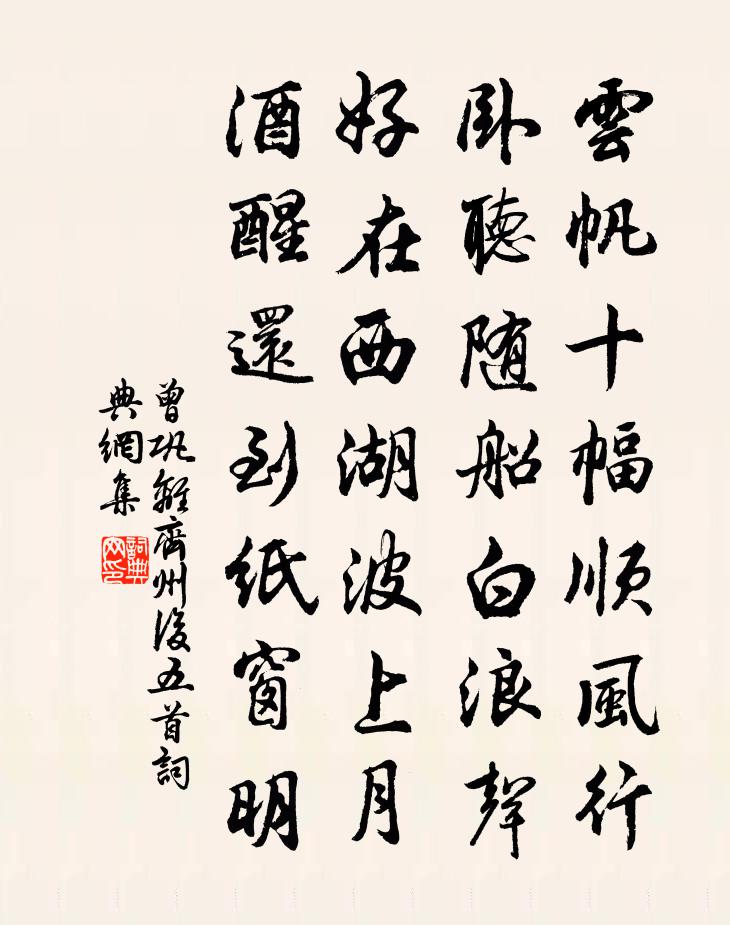 雲帆十幅順風行
卧聽随船白浪聲
好在西湖波上月
酒醒還到紙窗明
曾巩離齊州後五首詞
典網集
詞典网印